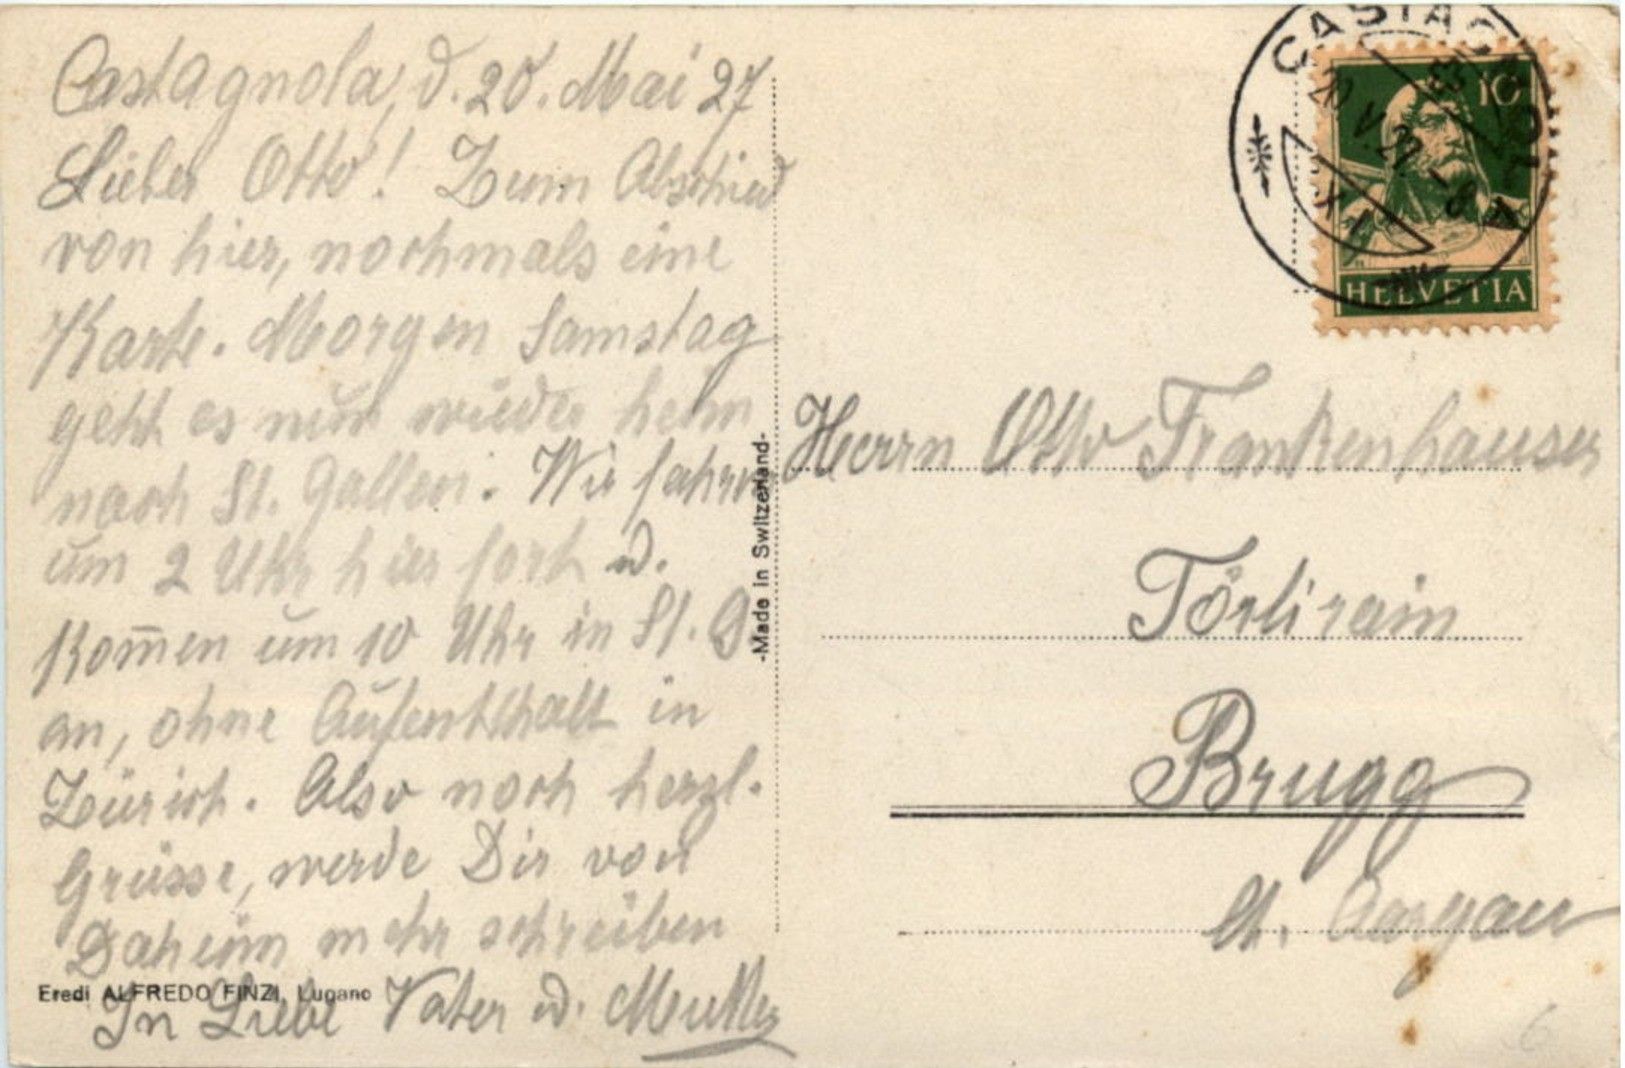 Castagnola, d. 20. Mai 27
Lieber Otto! Zum Abschied
von hier, nochmals eine
Karte. Morgen Samstag
geht es nun wieder heim
nach St. Gallen. Wir fahren
um 2 Uhr hier fort u.
kom̄en um 10 Uhr in St. G
an, ohne Aufenthalt in
Zürich. Also noch herzl.
Grüsse, werde Dir von
Daheim mehr schreiben
In Liebe Vater u. Mutter
Eredi ALFREDO FINZI, Lugano
-Made in Switzerland-
20.V.27.-8
10
HELVETIA
Herrn Otto Frankenhauser
Törlirain
Brugg
Ct. Aargau
6